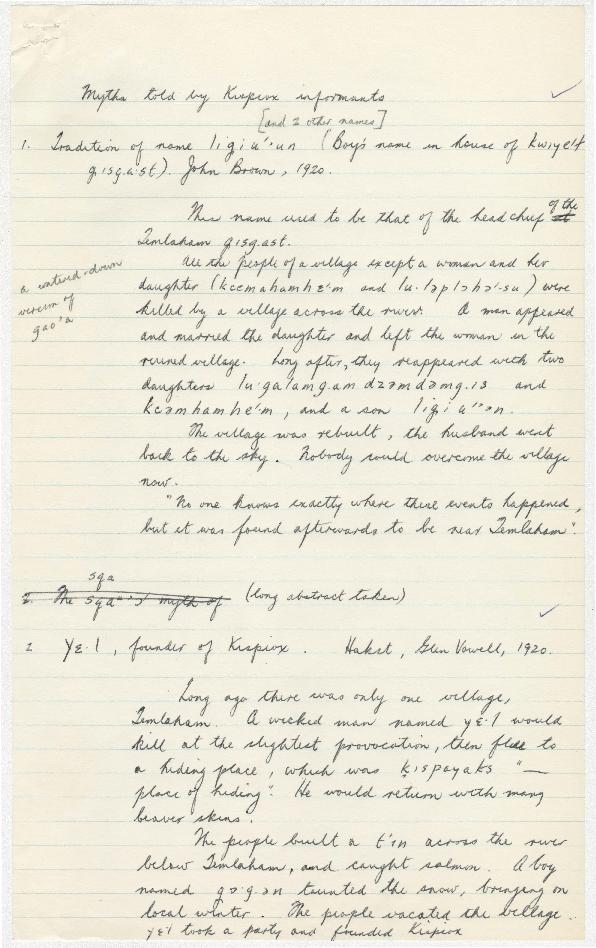 Myths told by Kispiox informants
[and 2 other names]
1. Tradition of name ligi u''un (Boy's name in house of kwiyɛ'ɬ
gisg.a·st). John Brown, 1920.
This name used to be that of the head chief of the
Temlaham gisgast.
All the people of a village except a woman and her
daughter (kcemahamhɛ'm and lu·ləpləhə'·su) were
a watered-down
version of
gao'a
killed by a village across the river. A man appeared
and married the daughter and left the woman in the
ruined village. Long after, they reappeared with two
daughters lu·ga'amg.am dzəmdəmg.is and
kcəmhamhe'm, and a son ligi u''ən.
The village was rebuilt, the husband went
back to the sky. Nobody could overcome the village
now.
"No one knows exactly where these events happened,
but it was found afterwards to be near Temlaham".
sqa
2. The myth of (long abstract taken)
2 yɛ·l, founder of Kispiox. Hakst, Glen Vowell, 1920.
Long ago there was only one village,
Temlaham. A wicked man named yɛ·l would
kill at the slightest provocation, then flee to
a hiding place, which was kispayaks "—
place of hiding". He would return with many
beaver skins.
The people built a t'in across the river
below Temlaham, and caught salmon. A boy
named gə·g.ən taunted the snow, bringing on
local winter. The people vacated the village.
yɛl took a party and founded Kispiox